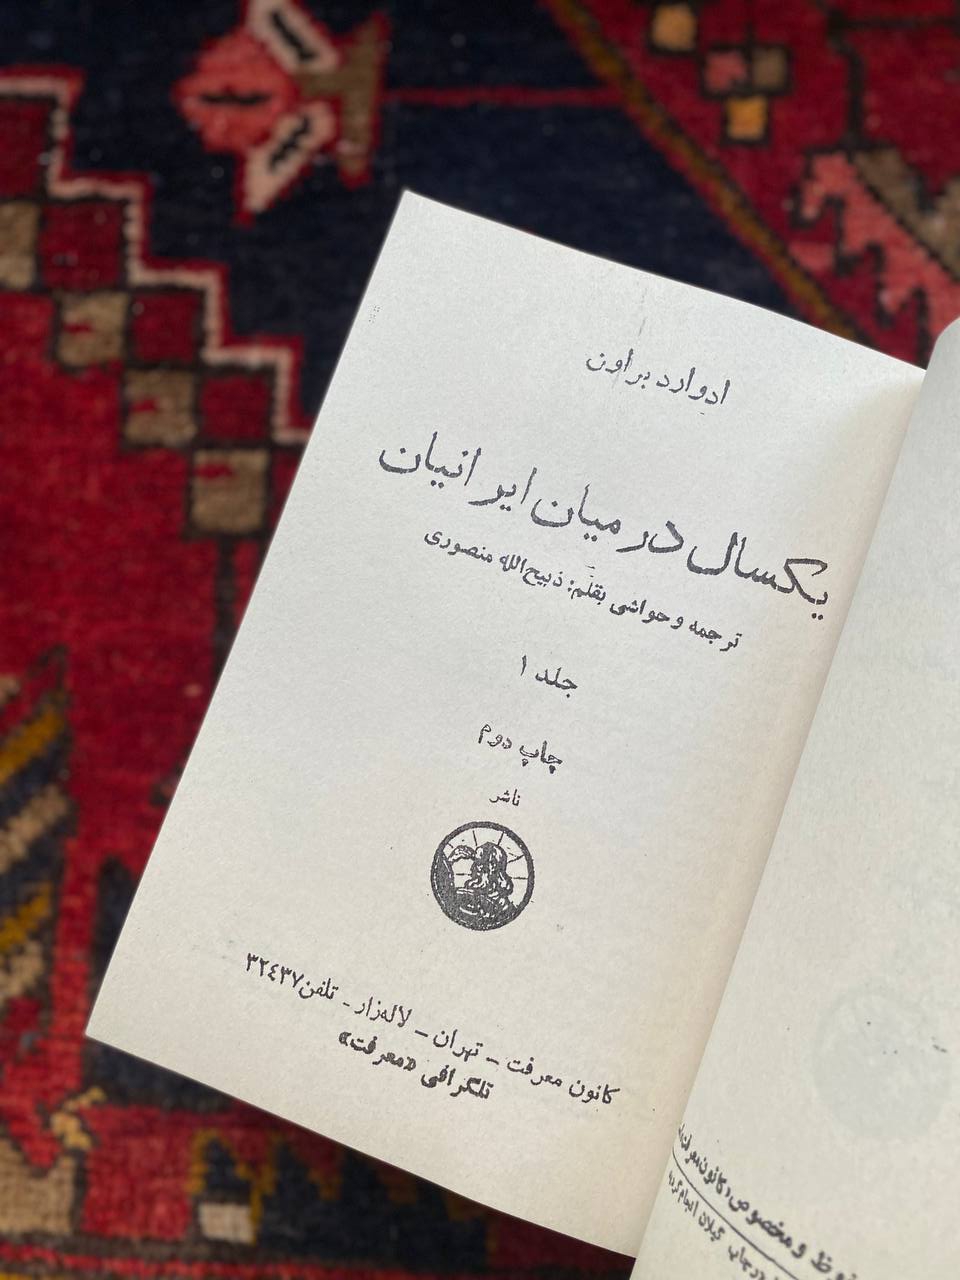 ادوارد براون
یکسال در میان ایرانیان
ترجمه و حواشی بقلم: ذبیح‌الله منصوری
جلد ۱
چاپ دوم
ناشر
کانون معرفت – تهران – لاله‌زار – تلفن ۳۲۴۳۷
تلگرافی «معرفت»
و مخصوص کانون معرفت
چاپ گیلان انجام گردید